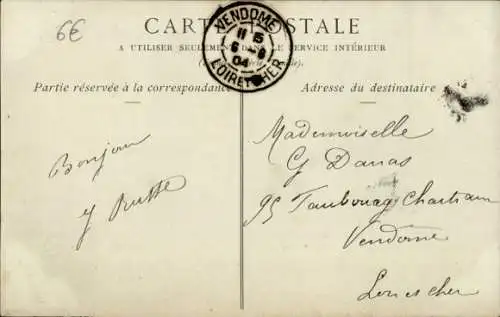 6€
CARTE POSTALE
A UTILISER SEULEMENT DANS LE SERVICE INTÉRIEUR
VENDOME
11 15
6 - 8
04
LOIR ET CHER
Partie réservée à la correspondance
Adresse du destinataire
Bonjour
Mademoiselle
G Danas
95 Faubourg Chartrain
Vendome
Loir et cher